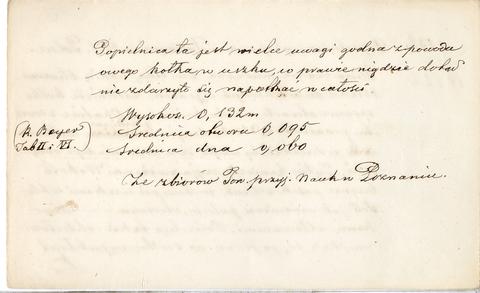 Popielnica ta jest wielce uwagi godna z powodu
owego kółka w uszku, co prawie nigdzie dotąd
nie zdarzyło się napotkać w całości.
Wysokoś. 0,132m
(K. Beyer Średnica otworu 0,095
Tab II i VI.) Średnica dna 0,060
Ze zbiorów Tow. przyj. Nauk w Poznaniu.